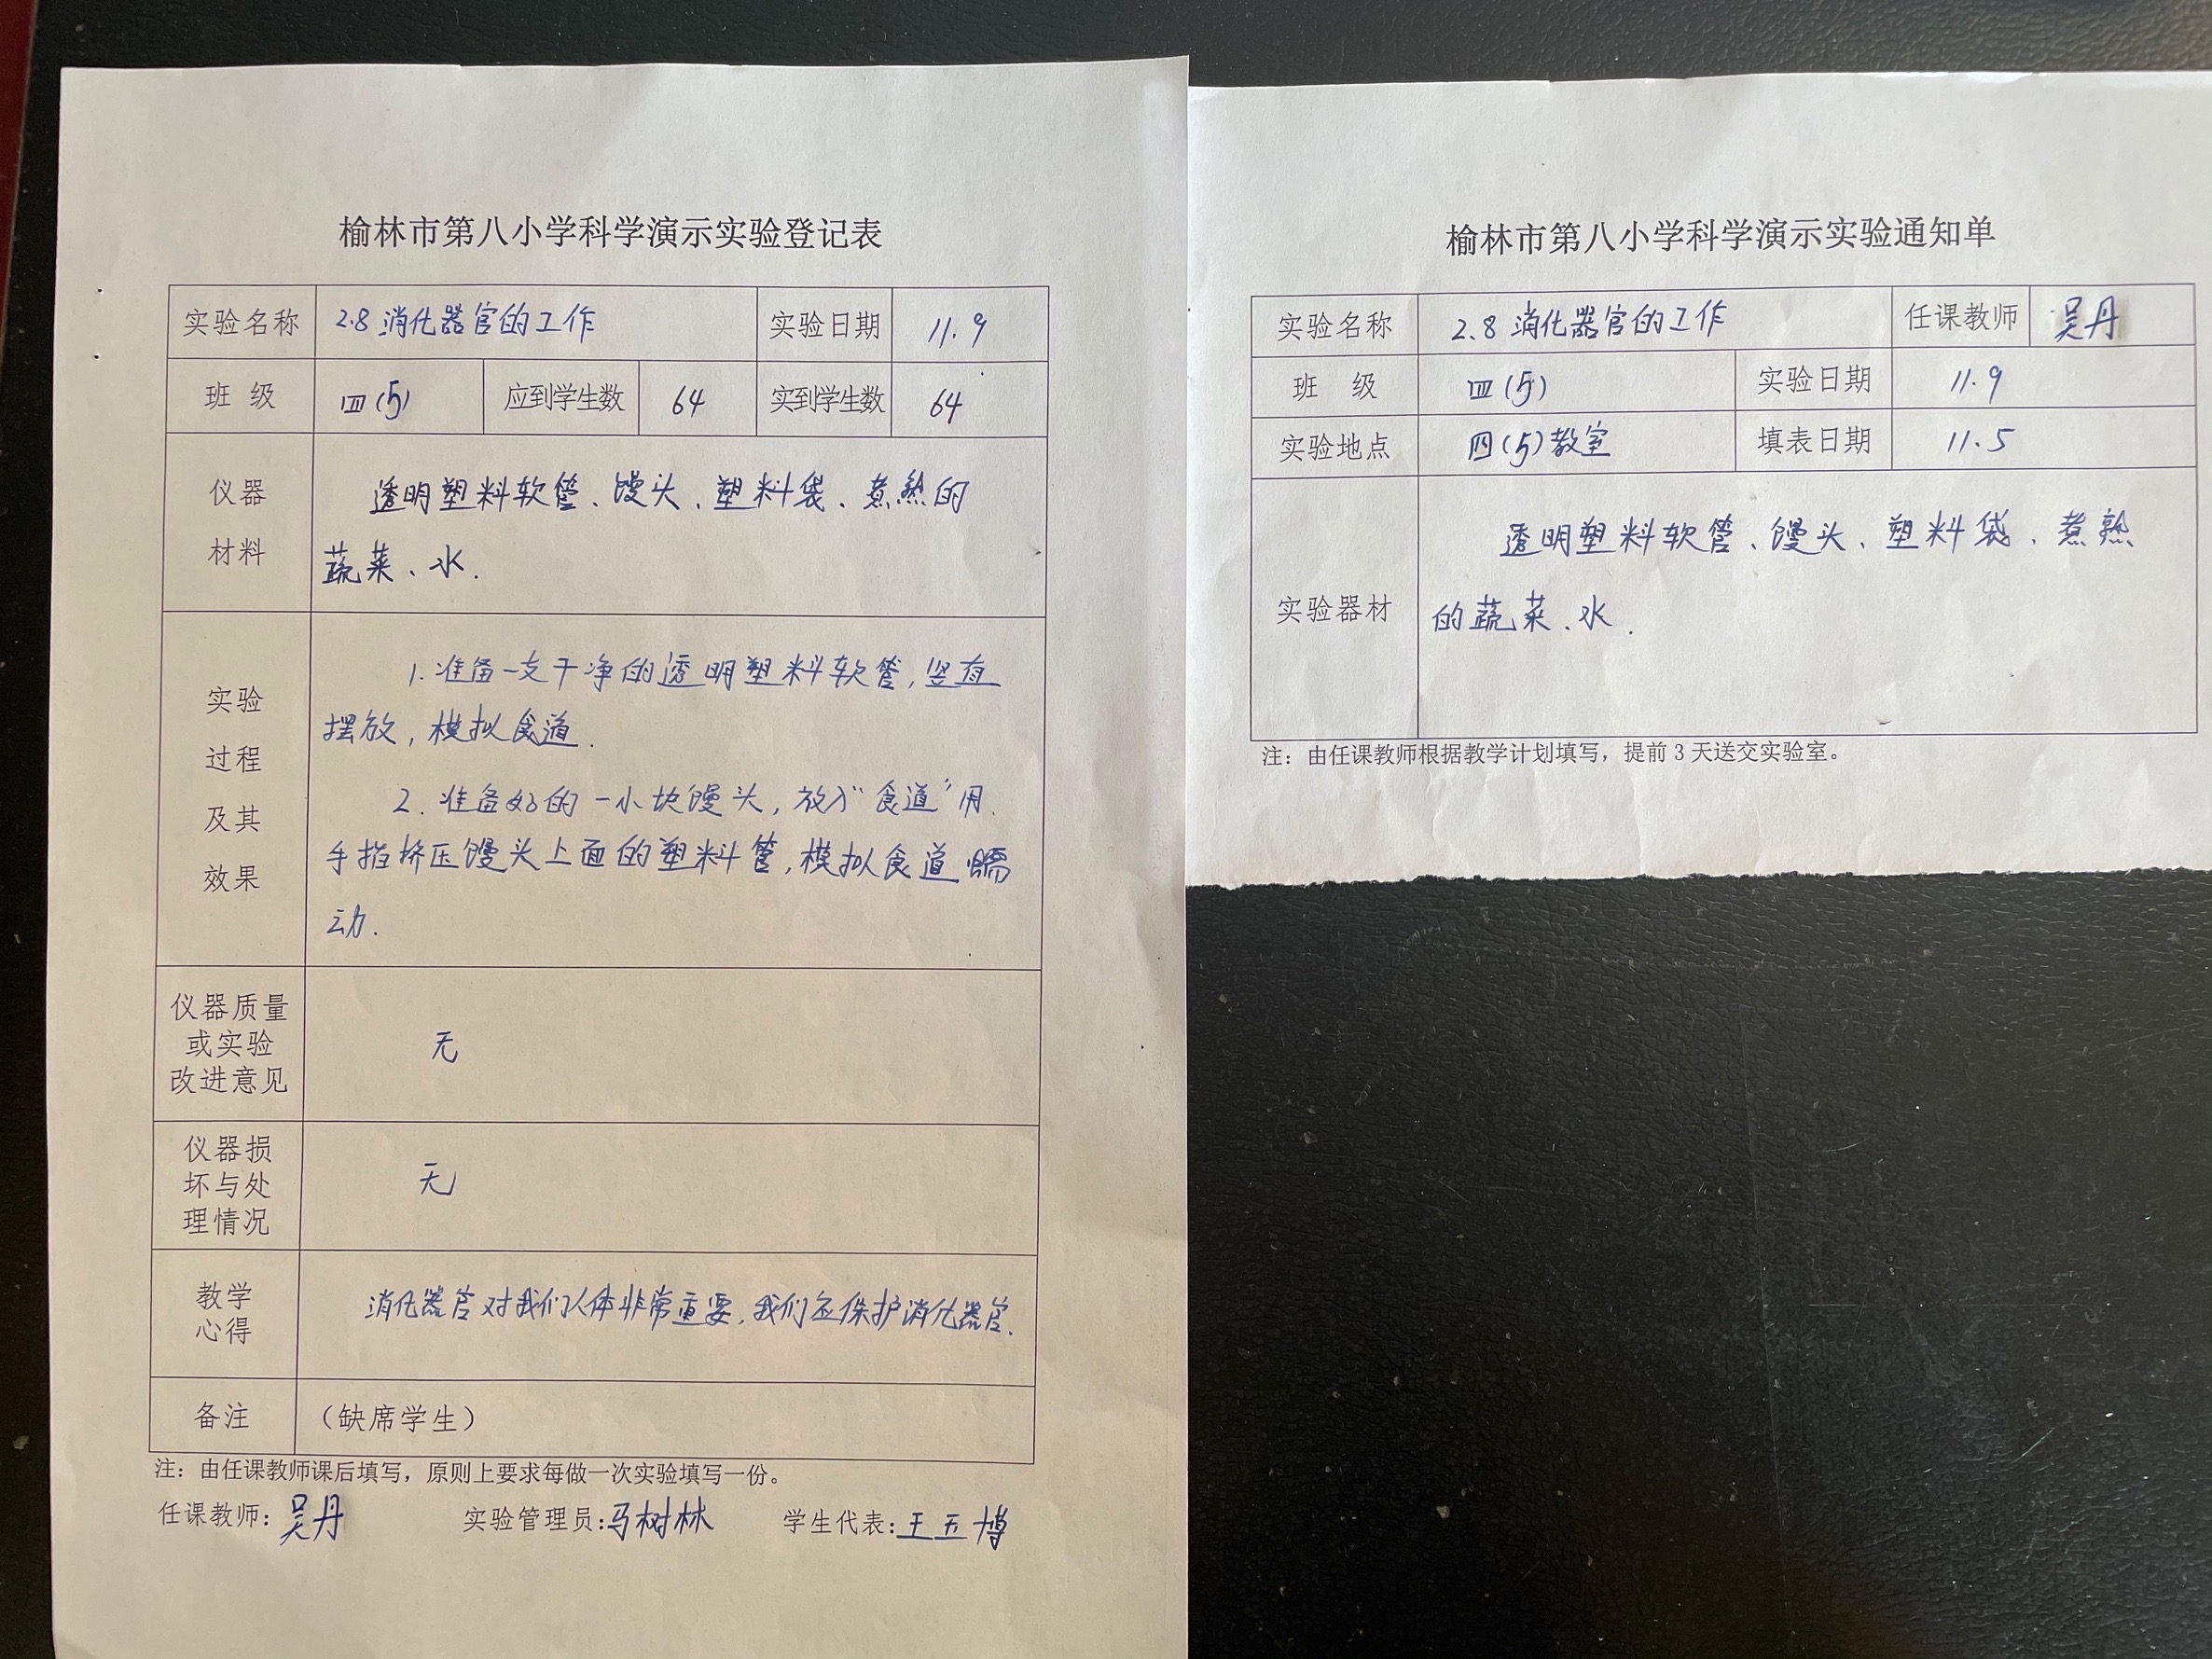 榆林市第八小学科学演示实验登记表
实验名称 2.8 消化器官的工作 实验日期 11.9
班 级 四(5) 应到学生数 64 实到学生数 64
仪器
材料
透明塑料软管、馒头、塑料袋、煮熟的
蔬菜、水.
实验
过程
及其
效果
1.准备一支干净的透明塑料软管,竖直
摆放,模拟食道.
2.准备好的一小块馒头,放入“食道”用
手指挤压馒头上面的塑料管,模拟食道蠕
动.
仪器质量
或实验
改进意见
无
仪器损
坏与处
理情况
无
教学
心得
消化器官对我们人体非常重要,我们应保护消化器官.
备注 (缺席学生)
注:由任课教师课后填写,原则上要求每做一次实验填写一份。
任课教师:吴丹 实验管理员:马树林 学生代表:王五博
榆林市第八小学科学演示实验通知单
实验名称 2.8 消化器官的工作 任课教师 吴丹
班 级 四(5) 实验日期 11.9
实验地点 四(5)教室 填表日期 11.5
实验器材
透明塑料软管、馒头、塑料袋、煮熟
的蔬菜、水.
注:由任课教师根据教学计划填写,提前3天送交实验室。